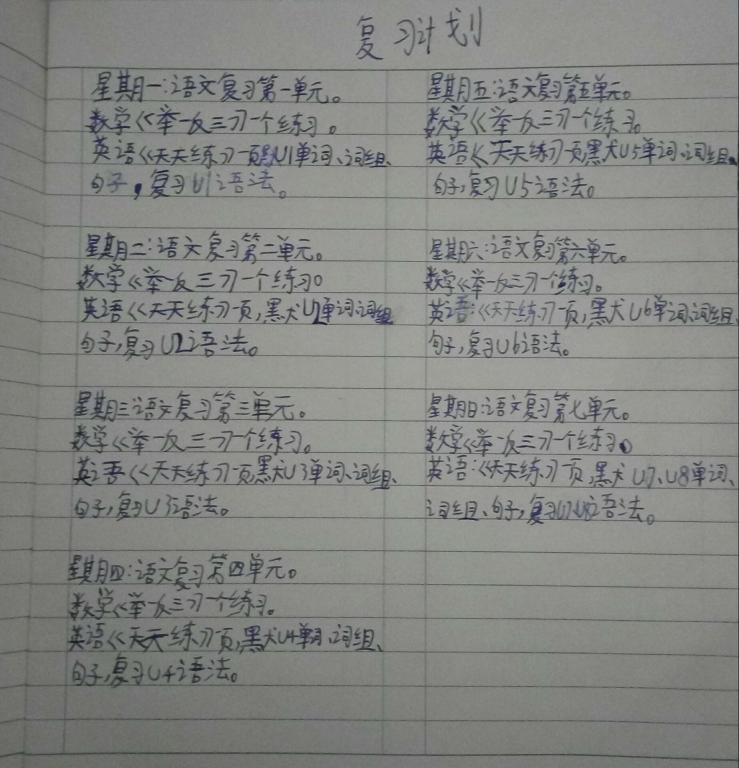 复习计划
星期一:语文复习第一单元。
数学《举一反三》一个练习。
英语《天天练》一页,默U1单词、词组、
句子,复习U1语法。
星期二:语文复习第二单元。
数学《举一反三》一个练习。
英语《天天练》一页,默U2单词、词组
句子,复习U2语法。
星期三:语文复习第三单元。
数学《举一反三》一个练习。
英语《天天练》一页,默U3单词、词组、
句子,复习U3语法。
星期四:语文复习第四单元。
数学《举一反三》一个练习。
英语《天天练》一页,默U4单词、词组、
句子,复习U4语法。
星期五:语文复习第五单元。
数学《举一反三》一个练习。
英语《天天练》一页,默U5单词、词组、
句子,复习U5语法。
星期六:语文复习第六单元。
数学《举一反三》一个练习。
英语:《天天练》一页,默U6单词、词组、
句子,复习U6语法。
星期日:语文复习第七单元。
数学《举一反三》一个练习。
英语:《天天练》一页,默U7、U8单词、
词组、句子,复习U7、U8语法。